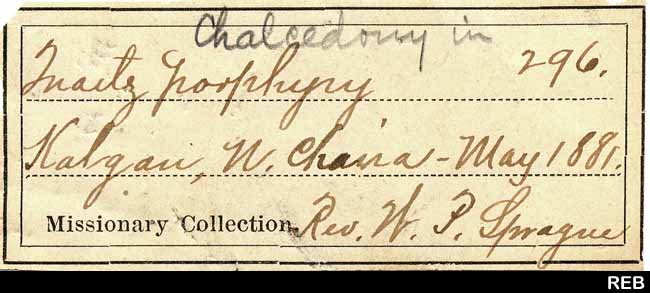 Chalcedony in
Quartz porphyry 296.
Kalgan, N. China - May 1881.
Missionary Collection - Rev. W. P. Sprague
REB